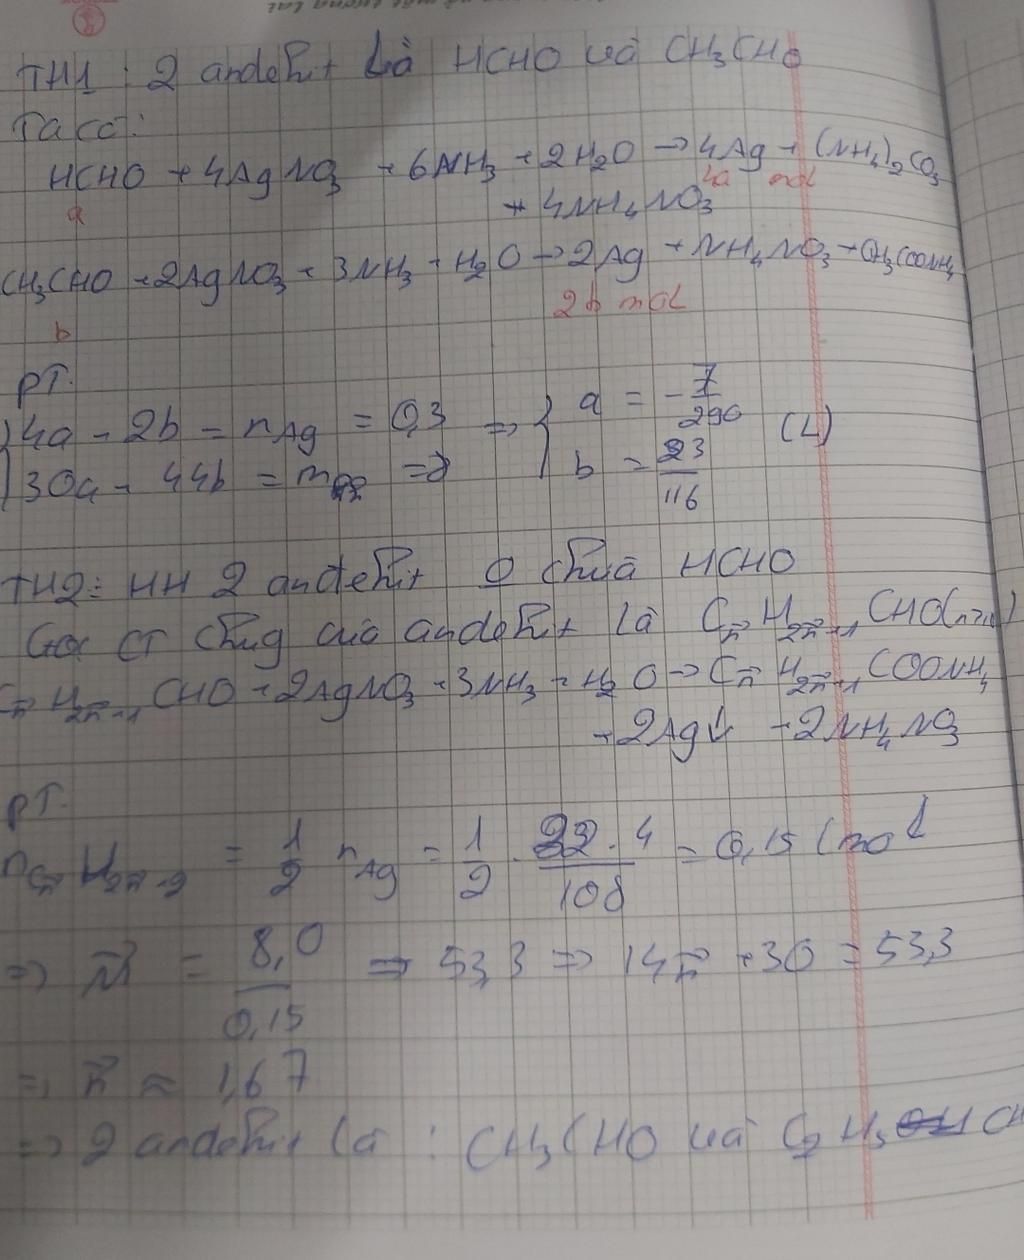 TH1 : 2 andehit là HCHO và CH3CHO
Ta có:
HCHO + 4AgNO3 + 6NH3 + 2H2O → 4Ag + (NH4)2CO3
a 4a mol
+ 4NH4NO3
CH3CHO + 2AgNO3 + 3NH3 + H2O → 2Ag + NH4NO3 + CH3COONH4
b 2b mol
PT:
4a + 2b = nAg = 0,3 => { a = -7/290 (L)
30a + 44b = m = 8 b = 23/116
TH2: HH 2 andehit 0 chứa HCHO
Gọi CT chug của andehit là Cn̄H2n̄+1CHO
Cn̄H2n̄+1CHO + 2AgNO3 + 3NH3 + H2O → Cn̄H2n̄+1COONH4
+ 2Ag↓ + 2NH4NO3
PT:
= 1/2 nAg = 1/2 . 32.4/108 = 0,15 (mol
=> M̄ = 8,0/0,15 = 53,3 => 14n̄ + 30 = 53,3
=> n̄ ≈ 1,67
=> 2 andehit là : CH3CHO và C2H5CH